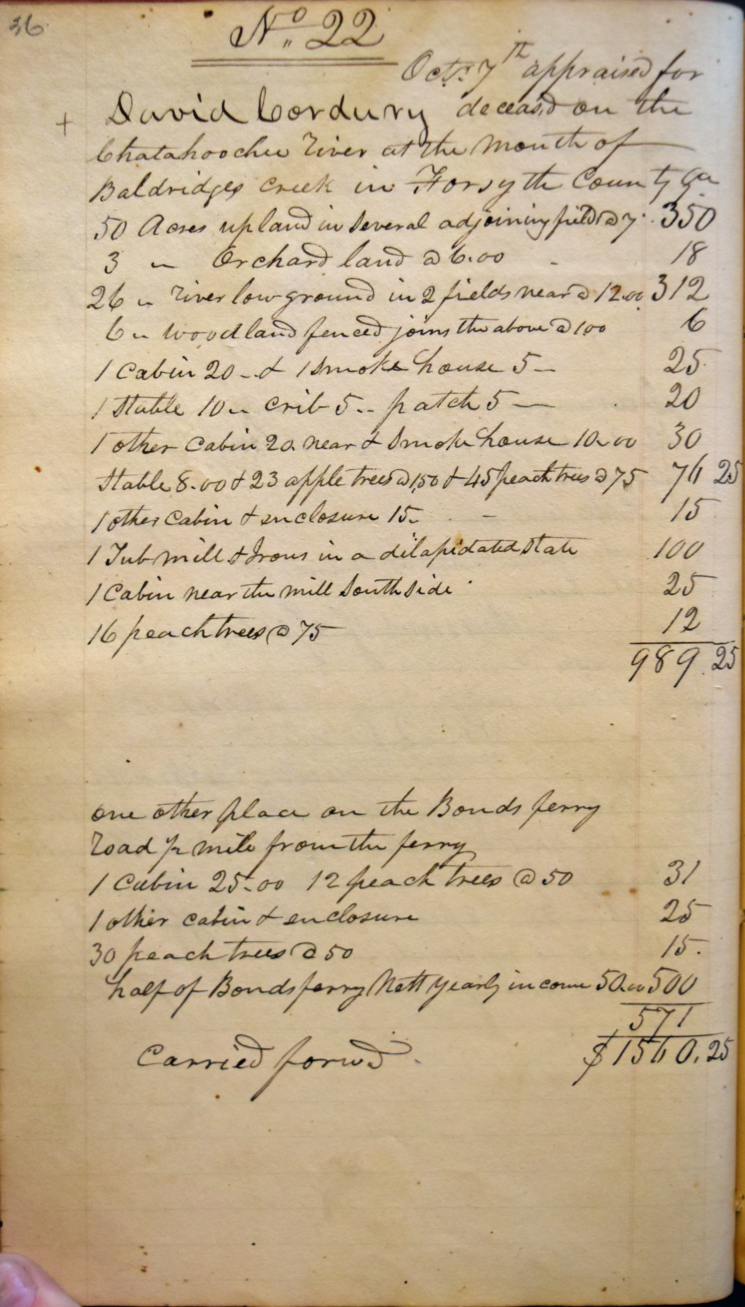 36
No. 22
Oct. 7th appraised for
+ David Cordury deceasd on the
Chatahoochee River at the Mouth of
Baldridges Creek in Forsyth County Ga
50 Acres upland in several adjoining fields @ 7. 350
3 " Orchard land @ 6.00 - 18
26 " River low ground in 2 fields near @ 12.00 312
6 " Woodland fenced joins the above @ 100 6
1 Cabin 20 - & 1 Smoke house 5 - 25
1 Stable 10 " crib 5 " patch 5 - 20
1 other Cabin 20 near & Smoke house 10.00 30
Stable 8.00 & 23 apple trees @ 1,50 & 45 peach trees @ 75 76 25
1 other Cabin & enclosure 15 - - 15
1 Tub mill & Irons in a dilapidated State 100
1 Cabin near the mill South side 25
16 peach trees @ 75 12
989.25
one other place on the Bonds ferry
Road ½ mile from the ferry
1 Cabin 25.00 12 peach trees @ 50 31
1 other cabin & enclosure 25
30 peach trees @ 50 15.
half of Bonds ferry Nett yearly income 50.00 500
571
Carried forwd. $1560.25